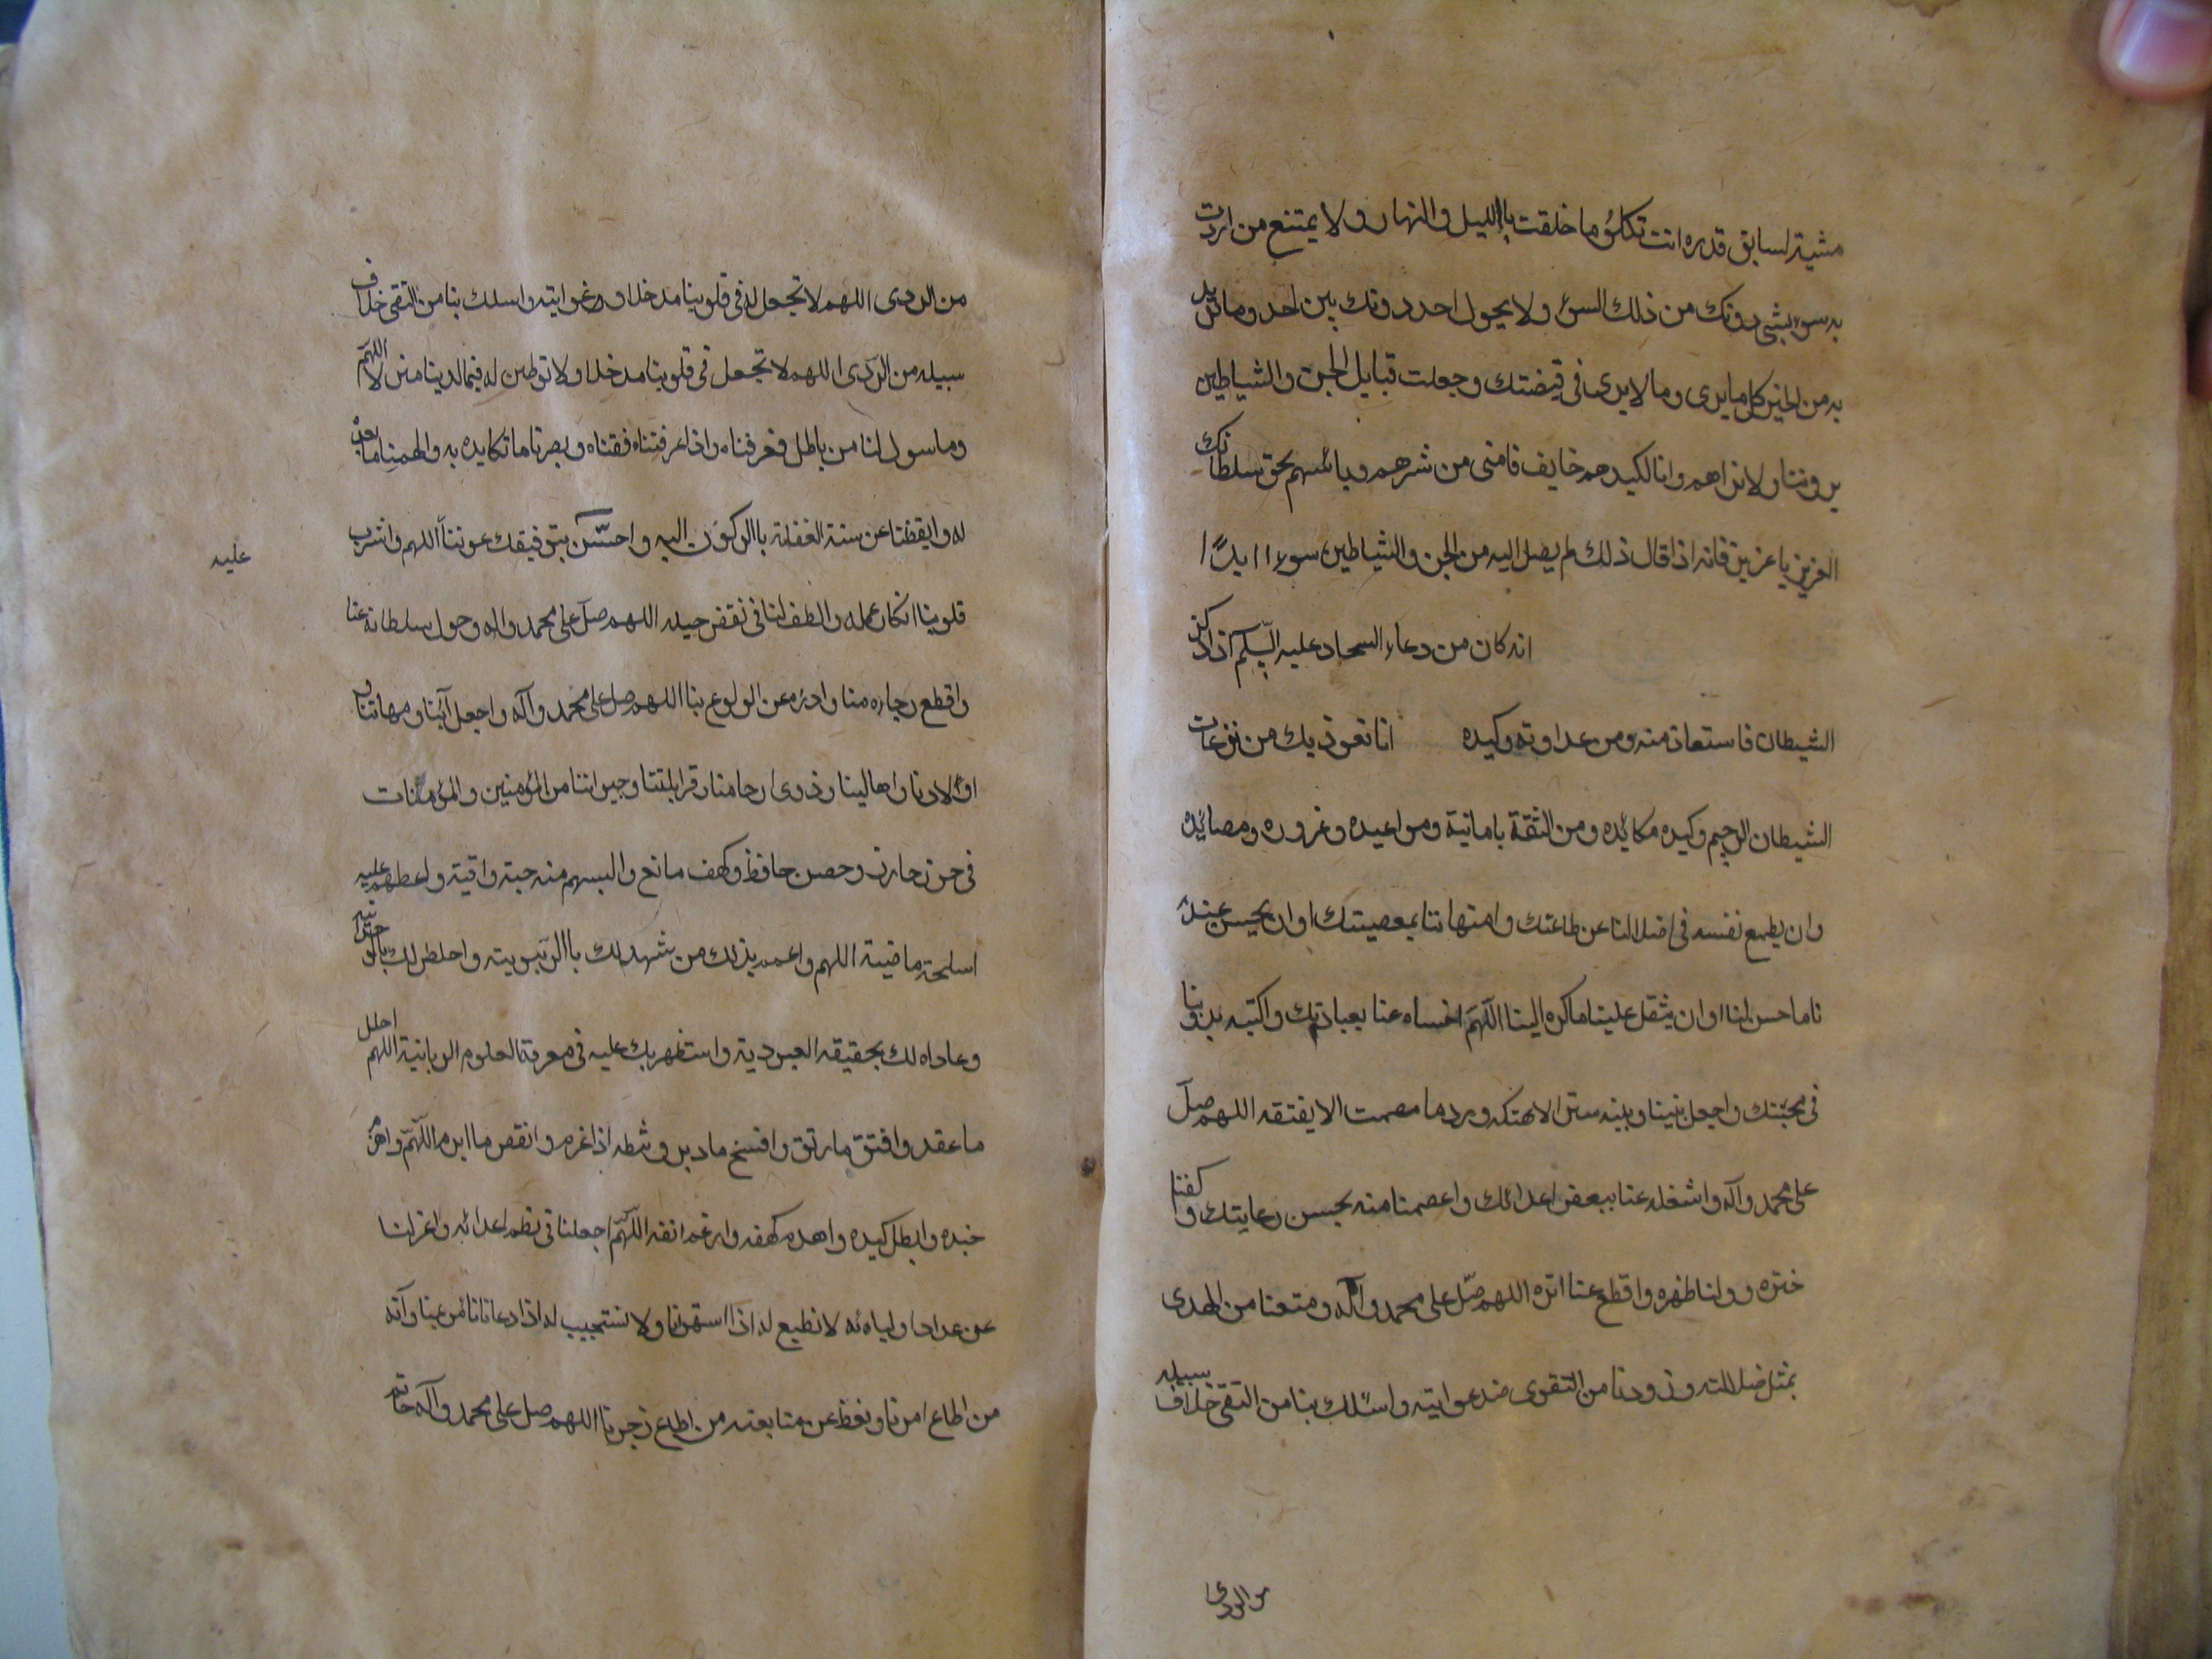 مشیته لسابق قدره انت تکلؤ ما خلقت باللیل والنهار ولا یمتنع من اردت
به سوء بشئ دونک من ذلک السوء ولا یحول احد دونک بین احد وما ترید
به من الخیر کل ما یری وما لا یری فی قبضتک وجعلت قبایل الجن والشیاطین
یروننا ولا نراهم وانا لکیدهم خایف فامنی من شرهم وبأسهم بحق سلطانک
العزیز یا عزیز فانه اذا قال ذلک لم یصل الیه من الجن والشیاطین سوءا ابدًا
انه کان من دعاء السجاد علیه السلام اذا ذکر
الشیطان فاستعاذ منه ومن عداوته وکیده انا نعوذ بک من نزغات
الشیطان الرجیم وکیده مکائده ومن الثقة بامانیة ومواعیده وغروره ومصائده
وان یطمع نفسه فی اضلالنا عن طاعتک وامتهاننا بمعصیتک اوان یحسن عندنا
ما حسن لنا اوان یثقل علینا ما کره الینا اللهم اخساه عنا بعبادتک واکبته بدؤبنا
فی محبتک واجعل بیننا وبینه سترا لا هتکه وردما مصمت الا یفتقه اللهم صل
علی محمد وآله واشغله عنا ببعض اعدائک واعصمنا منه بحسن رعایتک واکفنا
ختره وولنا ظهره واقطع عنا اثره اللهم صل علی محمد وآله ومتعنا من الهدی
بمثل ضلالته وزودنا من التقوی ضد غوایته واسلک بنا من التقی خلاف سبیله
من الردی
من الردی اللهم لا تجعل له فی قلوبنا مدخلا وغوایته واسلک بنا من التقی خلاف
سبیله من الردی اللهم لا تجعل فی قلوبنا مدخلا ولا توطین له فیما لدینا منزلا اللهم
وما سول لنا من باطل فعرفناه واذا عرفتناه فقناه وبصرنا ما تکایده به والهمنا ما نعده
له وایقظنا عن سنة الغفلة باالرکون الیه واحسن بتوفیقک عوننا اللهم واشرب
علیه
قلوبنا انکار عمله والطف لنا فی نقض حیله اللهم صل علی محمد واله وحول سلطانه عنا
واقطع رجاءه منا وادرءه عن الولوع بنا اللهم صل علی محمد وآله واجعل آبائنا وامهاتنا و
اولادنا واهالینا وذوی ارحامنا وقراباتنا وجیراننا من المؤمنین والمؤمنات
فی حرز حارز وحصن حافظ وکهف مانع والبسهم منه جنة واقیة واعطهم علیه
اسلحة ماضیة اللهم واعمم بذلک من شهد لک باالربوبیته واخلص لک بالوحدانیه
وعاداه لک بحقیقه العبودیة واستظهر بک علیه فی معرفة العلوم الربانیة اللهم احلل
ما عقد وافتق ما رتق وافسخ ما دبر وثبطه اذا عزم وانقض ما ابرم اللهم واهزم
جنده وابطل کیده واهدم کهفه وارغم انفه اللهم اجعلنا فی نظم اعدائه واعزلنا
عن عداد اولیاءه لا نطیع له اذا استهوانا ولا نستجیب له اذا دعانا نأمر
من اطاع امرنا ونعظ عن متابعته من اطاع زجرنا اللهم صل علی محمد وآله خاتم